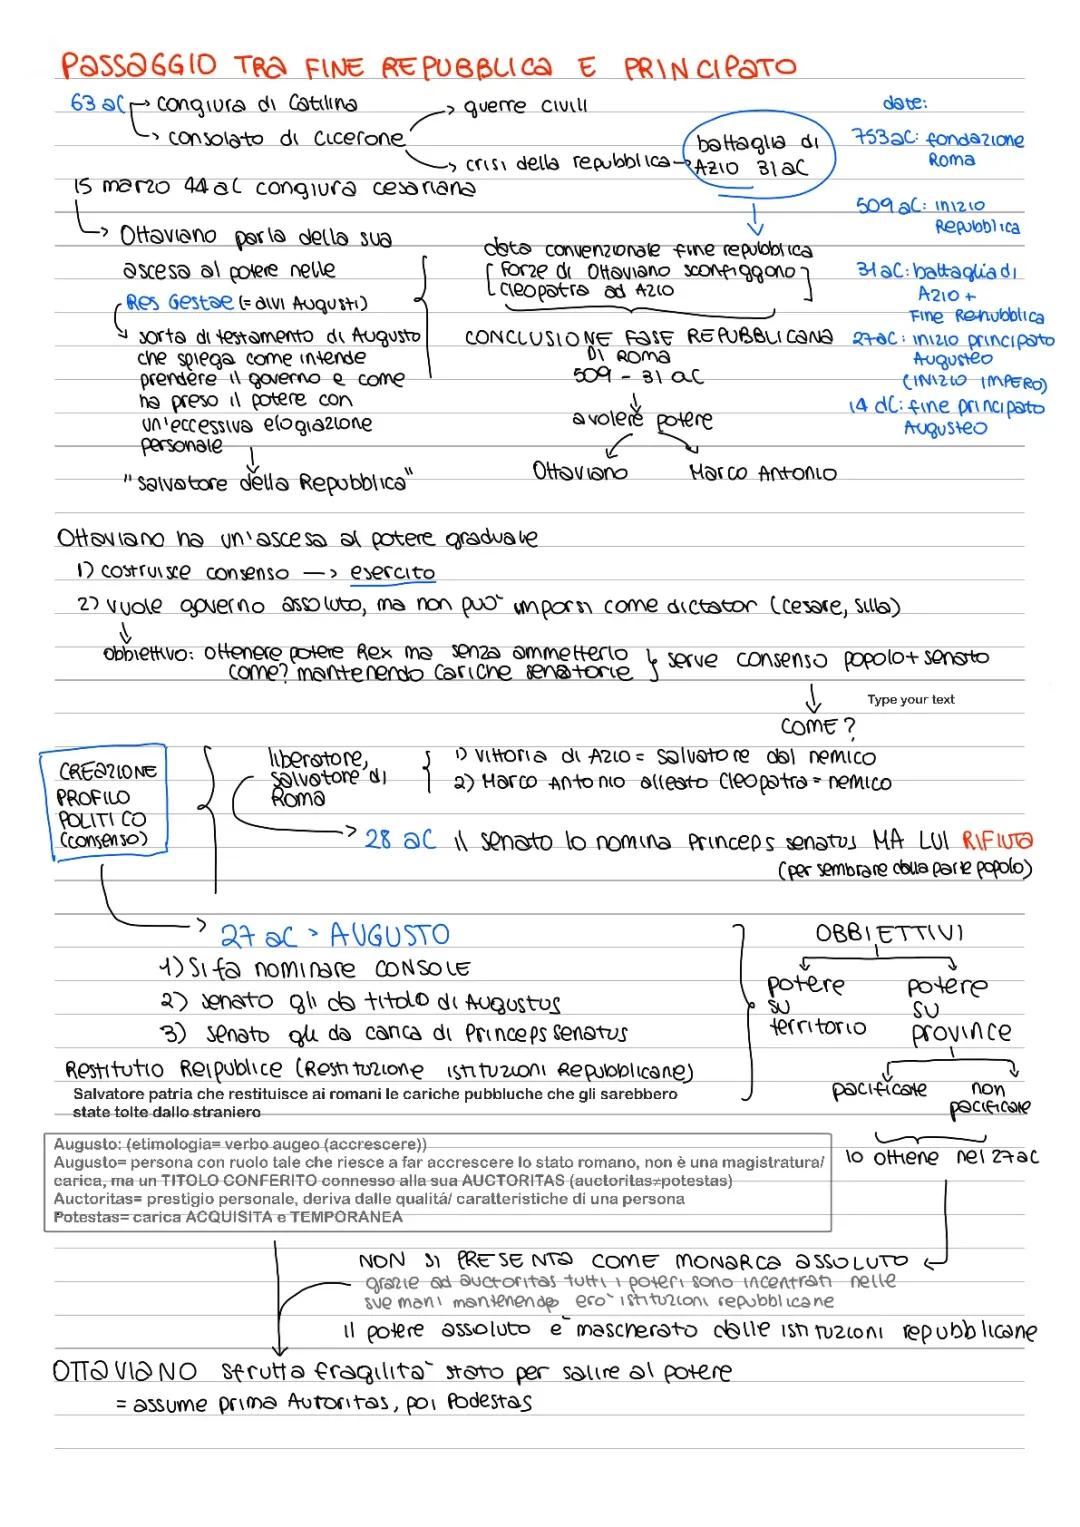 PASSAGGIO TRA FINE REPUBBLICA E PRINCIPATO
63 aC → congiura di Catilina
→ consolato di Cicerone
→ guerre civili
→ crisi della repubblica →
battaglia di
AZIO 31 aC
15 marzo 44 aC congiura cesariana
→ Ottaviano parla della sua
ascesa al potere nelle
Res Gestae (= divi Augusti)
→ sorta di testamento di Augusto
che spiega come intende
prendere il governo e come
ha preso il potere con
un'eccessiva elogiazione
personale
"salvatore della Repubblica"
data convenzionale fine repubblica
[ Forze di Ottaviano sconfiggono ]
[ Cleopatra ad AZIO ]
CONCLUSIONE FASE REPUBBLICANA
DI ROMA
509 - 31 aC
a volere potere
Ottaviano Marco Antonio
date:
753 aC: fondazione
Roma
509 aC: inizio
Repubblica
31 aC: battaglia di
AZIO +
Fine Repubblica
27 aC: inizio principato
Augusteo
(INIZIO IMPERO)
14 dC: fine principato
Augusteo
Ottaviano ha un'ascesa al potere graduale
1) costruisce consenso —> esercito
2) vuole governo assoluto, ma non puo' imporsi come dictator (cesare, silla)
obbiettivo: ottenere potere Rex ma senza ammetterlo
come? mantenendo cariche senatorie
} serve consenso popolo + senato
Type your text
COME?
CREAZIONE
PROFILO
POLITICO
(consenso)
liberatore,
salvatore di
Roma
1) Vittoria di AZIO = salvatore dal nemico
2) Marco Antonio alleato Cleopatra = nemico
→ 28 aC il senato lo nomina Princeps senatus MA LUI RIFIUTA
(per sembrare dalla parte popolo)
→ 27 aC > AUGUSTO
1) Si fa nominare CONSOLE
2) senato gli da titolo di Augustus
3) senato gli da carica di Princeps Senatus
Restitutio Reipublice (Restituzione istituzioni Repubblicane)
Salvatore patria che restituisce ai romani le cariche pubbluche che gli sarebbero
state tolte dallo straniero
OBBIETTIVI
potere
su
territorio
potere
su
province
pacificate
non
pacificate
lo ottiene nel 27 aC
Augusto: (etimologia= verbo augeo (accrescere))
Augusto= persona con ruolo tale che riesce a far accrescere lo stato romano, non è una magistratura/
carica, ma un TITOLO CONFERITO connesso alla sua AUCTORITAS (auctoritas≠potestas)
Auctoritas= prestigio personale, deriva dalle qualitá/ caratteristiche di una persona
Potestas= carica ACQUISITA e TEMPORANEA
NON SI PRESENTA COME MONARCA ASSOLUTO
grazie ad auctoritas tutti i poteri sono incentrati nelle
sue mani mantenendo ero' istituzioni repubblicane
il potere assoluto e' mascherato dalle istituzioni repubblicane
OTTAVIANO sfrutta fragilita' stato per salire al potere
= assume prima Autoritas, poi Podestas